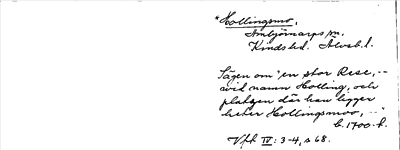 "Hollingsmo,
Ambjörnarps sn.
Kinds hd. Älvsb. l.
Sägen om "en stor Rese, --
wid namn Holling, och
platzen där han ligger
heter Hollingsmoo, --"
b. 1700-t.
Vfh IV: 3-4, s 68.